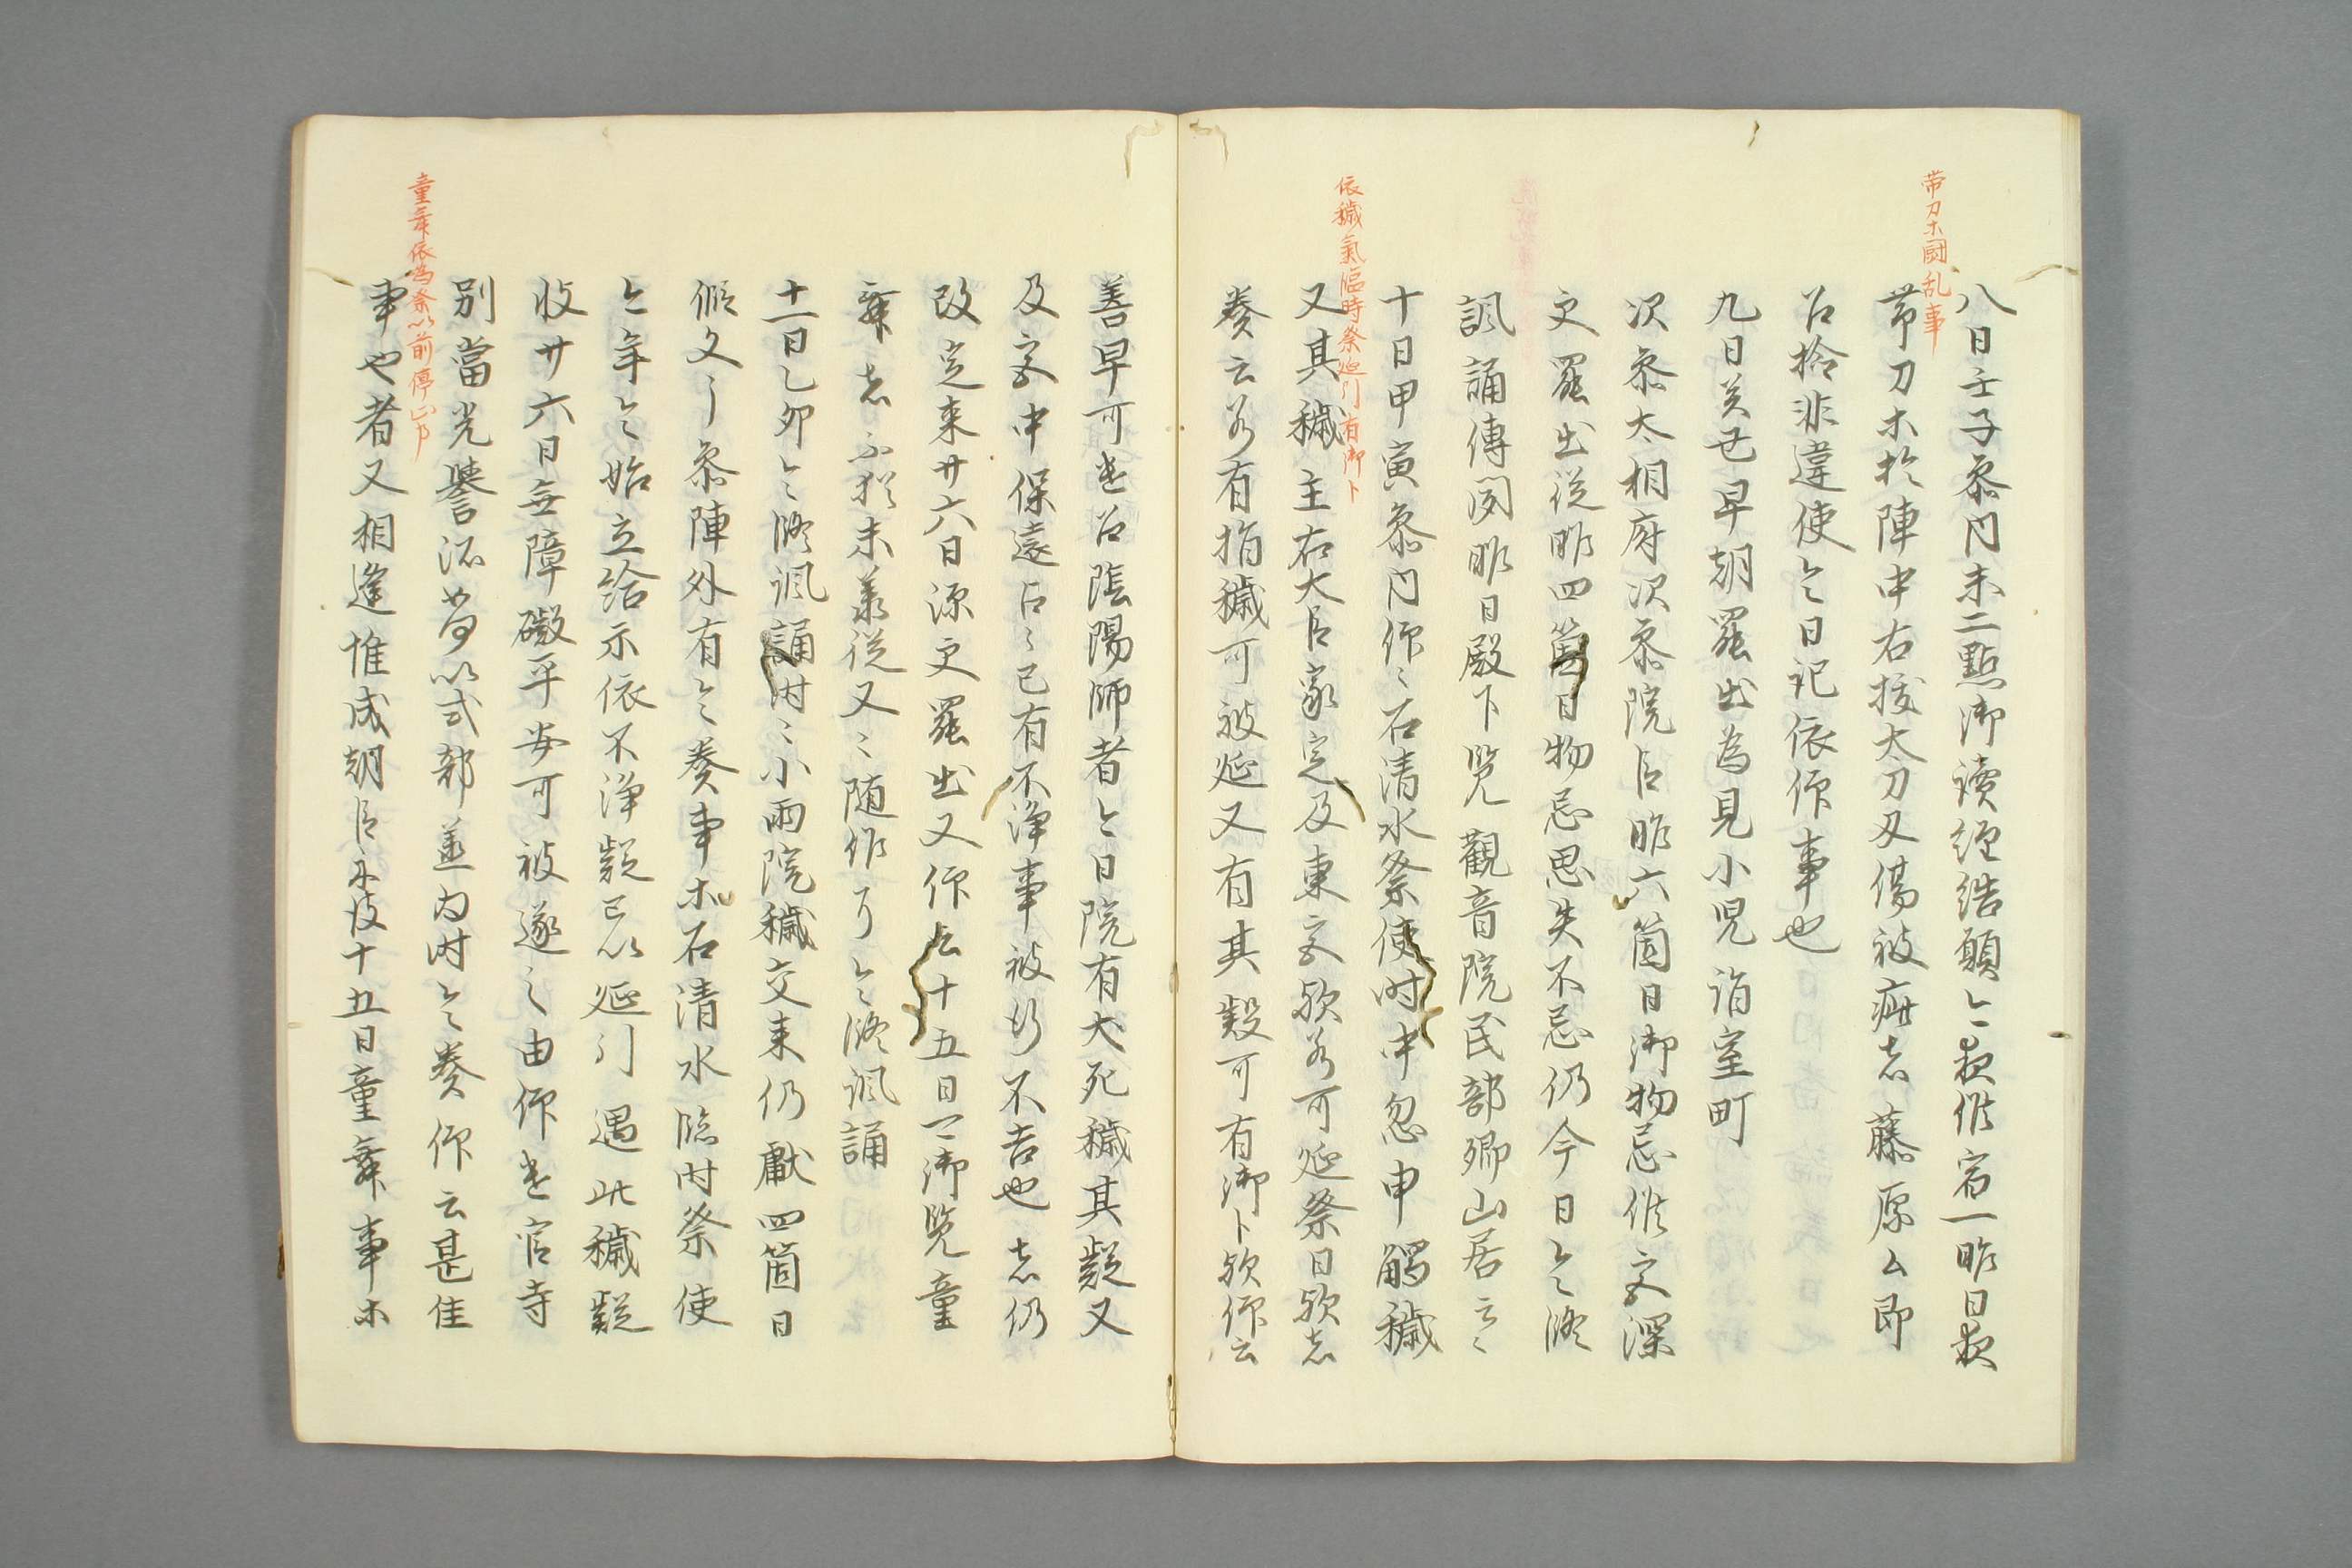 帯刀木闘乱事
八日壬子参内未二點御讀經結願今夜候宿一昨日夜
帯刀木於陣中右拔太刀刃傷被疵者藤原公即
召捡非違使令日記依仰事也
九日癸丑早朝罷出為見小児詣室町
次参太相府次参院自昨六箇日御物忌候文深
更罷出従昨四箇日物忌思失不忌仍今日令修
諷誦傳聞昨日殿下覧觀音院民部卿山居云々
依穢氣臨時祭延引有御卜
十日甲寅参内仰云石清水祭使時中忽申觸穢
又其穢主右大臣家定及東宮欤若可延祭日欤者
奏云若有指穢可被延又有其疑可有御卜欤仰云
善早可遣召陰陽師者今日院有犬死穢其疑又
及宮中保遠占云已有不浄事被行不吉也者仍
改定来廿六日深更罷出又仰云十五日可御覧童
舞者而猶未兼従又々随仰了令修諷誦
十一日乙卯令修諷誦時々小雨院穢交来仍獻四箇日
假文了参陣外有令奏事木石清水臨時祭使
今年令始立給示依不浄疑已以延引遇此穢疑
收廿六日無障礙平安可被遂之由仰遣官寺
別當光譽法師以式部丞為時令奏仰云甚佳
童舞依為祭以前停止了
事也者又相逢惟成朝臣示彼十五日童舞事木